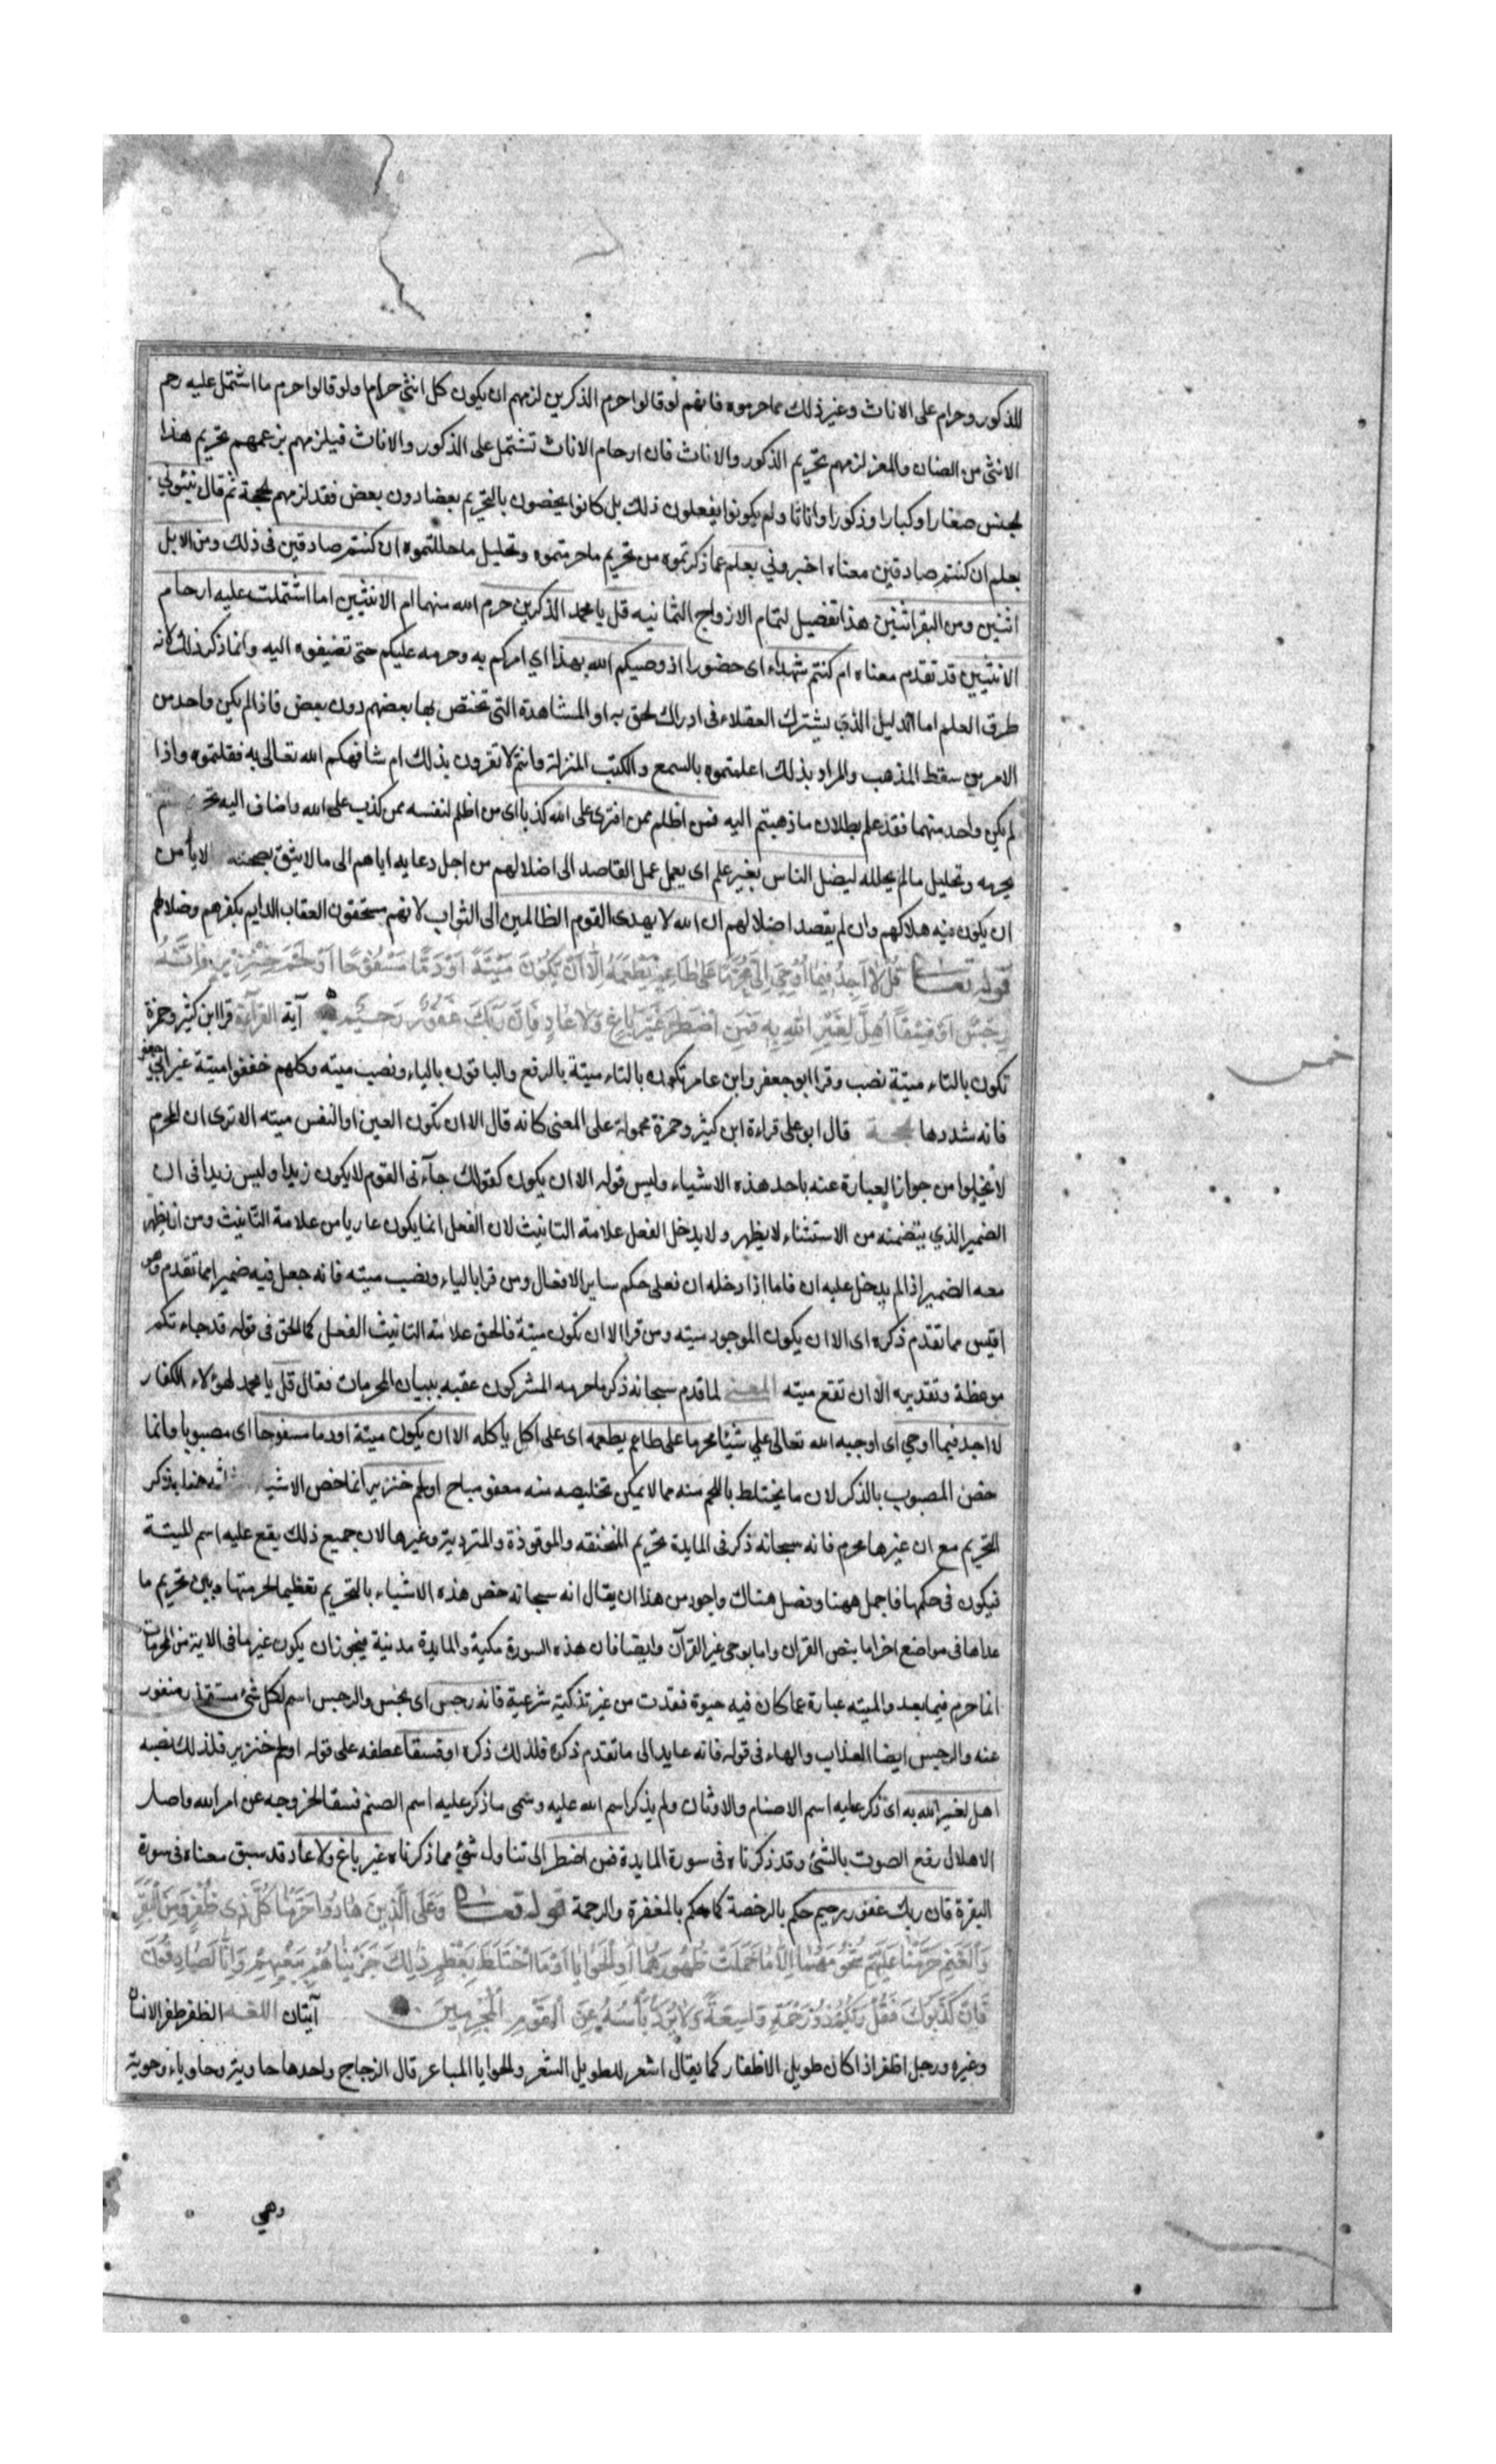 للذكور وحرام على الاناث وغير ذلك مما حرموه فانهم لو قالوا حرم الذكرين لزمهم ان يكون كل انثى حراما ولو قالوا حرم ما اشتمل عليه رحم
الانثى من الضان والمعز لزمهم تحريم الذكور والاناث فان ارحام الاناث تشتمل على الذكور والاناث فيلزمهم بزعمهم تحريم هذا
لجنس صغارا وكبارا وذكورا واناثا ولم يكونوا يفعلون ذلك بل كانوا يخصون بالتحريم بعضا دون بعض فقد لزمهم لحجة ثم قال نبئوني
بعلم ان كنتم صادقين معناه اخبروني بعلم عما ذكرتموه من تحريم ما حرمتموه وتحليل ما حللتموه ان كنتم صادقين فى ذلك ومن الابل
اثنين ومن البقر اثنين هذا تفصيل لتمام الازواج الثمانيه قل يا محمد الذكرين حرم الله منهما ام الانثيين اما اشتملت عليه ارحام
الانثيين قد تقدم معناه ام كنتم شهداء اى حضورا اذ وصيكم الله بهذا اي امركم به وحرمه عليكم حتى تضيفوه اليه وانما ذكر ذلك لانه
طرق العلم اما الدليل الذي يشترك العقلاء فى ادراك لحق به او المشاهدة التى تختص بها بعضهم دون بعض فاذا لم يكن واحد من
الامرين سقط المذهب والمراد بذلك اعلمتموه بالسمع والكتب المنزلة وانتم لا تقرون بذلك ام شافهكم الله تعالى به فقلتموه واذا
لم يكن واحد منهما فقد علم بطلان ما ذهبتم اليه فمن اظلم ممن افترى على الله كذبا اى من اظلم لنفسه ممن كذب على الله واضاف اليه
يحرمه وتحليل ما لم يحلله ليضل الناس بغير علم اى يعمل عمل القاصد الى اضلالهم من اجل دعايه اياهم الى ما لا يثق بصحته الا يأمن
ان يكون فيه هلاكهم وان لم يقصد اضلالهم ان الله لا يهدى القوم الظالمين الى الثواب لانهم مستحقون العقاب الدايم بكفرهم وضلالهم
قوله تعا قُل لا اجد فيما اوحي الي محرما على طاعم يطعمه الا ان يكون ميتة او دما مسفوحا او لحم خنزير فانه
رجس او فسقا اهل لغير الله به فمن اضطر غير باغ ولا عاد فان ربك غفور رحيم آية القرآءة قرا ابن كثير وحمزة
تكون بالتاء ميتة نصب وقرا ابو جعفر وابن عامر تكون بالتاء ميتة بالرفع والباقون بالياء ونصب ميته وكلهم خففوا ميتة غير ابي جعفر
فانه شددها لحجة قال ابو على قراءة ابن كثير وحمزة محمولة على المعنى كانه قال الا ان تكون العين او النفس ميته الا ترى ان المحرم
لا يخلوا من جواز العبارة عنه باحد هذه الاشياء وليس قوله الا ان يكون كقولك جآءنى القوم لا يكون زيدا وليس زيدا فى ان
الضمير الذي يتضمنه من الاستثناء لا يظهر ولا يدخل الفعل علامة التانيث لان الفعل انما يكون عاريا من علامة التانيث ومن ان يظهر
معه الضمير اذا لم يدخل عليه ان فاما اذا دخله ان فعلى حكم ساير الافعال ومن قرا بالياء ونصب ميته فانه جعل فيه ضميرا مما تقدم وهو
اقيس مما تقدم ذكره اى الا ان يكون الموجود ميته ومن قرا الا ان تكون ميتة فالحق علامة التانيث الفعل كما الحق فى قوله قد جاءتكم
موعظة وتقديره الا ان تقع ميته المعنى لما قدم سبحانه ذكر ما حرمه المشركون عقبه ببيان المحرمات فقال قل يا محمد لهؤلاء الكفار
لا اجد فيما اوحي اى اوجبه الله تعالى علي شيئا محرما على طاعم يطعمه اى على اكل ياكله الا ان يكون ميتة او دما مسفوحا اى مصبوبا وانما
خص المصبوب بالذكر لان ما يختلط باللحم منه مما لا يمكن تخليصه منه معفو مباح او لحم خنزير انما خص الاشياء هنا بذكر
التحريم مع ان غيرها محرم فانه سبحانه ذكر فى المايدة تحريم المنخنقه والموقوذة والمتردية وغيرها لان جميع ذلك يقع عليه اسم الميتة
فيكون فى حكمها فاجمل ههنا وفصل هناك واجود من هذا ان يقال انه سبحانه خص هذه الاشياء بالتحريم تعظيما لحرمتها وبين تحريم ما
عداها فى مواضع اخر اما بنص القران واما بوحى غير القرآن وايضا فان هذه السورة مكية والمايدة مدنية فيجوز ان يكون غير ما فى الاية من المحرمات
انما حرم فيما بعد والميته عبارة عما كان فيه حيوة فقدت من غير تذكية شرعية فانه رجس اى نجس والرجس اسم لكل شئ مستقذر منفور
عنه والرجس ايضا العذاب والهاء فى قوله فانه عايد الى ما تقدم ذكره فلذلك ذكره او فسقا عطفه على قوله او لحم خنزير فلذلك نصبه
اهل لغير الله به اى ذكر عليه اسم الاصنام والاوثان ولم يذكر اسم الله عليه وسمى ما ذكر عليه اسم الصنم فسقا لخروجه عن امر الله واصل
الاهلال رفع الصوت بالشئ وقد ذكرناه فى سورة المايدة فمن اضطر الى تناول شئ مما ذكرناه غير باغ ولا عاد قد سبق معناه فى سورة
البقرة فان ربك غفور رحيم حكم بالرخصة كما حكم بالمغفرة والرحمة قوله تعا وعلى الذين هادوا حرمنا كل ذى ظفر ومن البقر
والغنم حرمنا عليهم شحومهما الا ما حملت ظهورهما او الحوايا او ما اختلط بعظم ذلك جزيناهم ببغيهم وانا لصادقون
فان كذبوك فقل ربكم ذو رحمة واسعة ولا يرد بأسه عن القوم المجرمين آيتان اللغة الظفر ظفر الانسان
وغيره ورجل اظفر اذا كان طويل الاظفار كما يقال اشعر للطويل الشعر والحوايا المباعر قال الزجاج واحدها حاوية وحاوياء وحوية
وهي